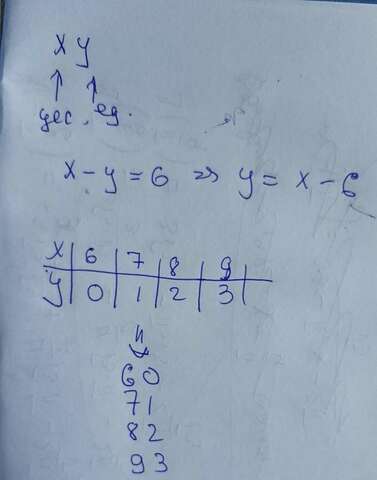 x y
↑ ↑
дес. ед.
x - y = 6 ⇒ y = x - 6
x | 6 | 7 | 8 | 9 |
y | 0 | 1 | 2 | 3 |
⇓
60
71
82
93